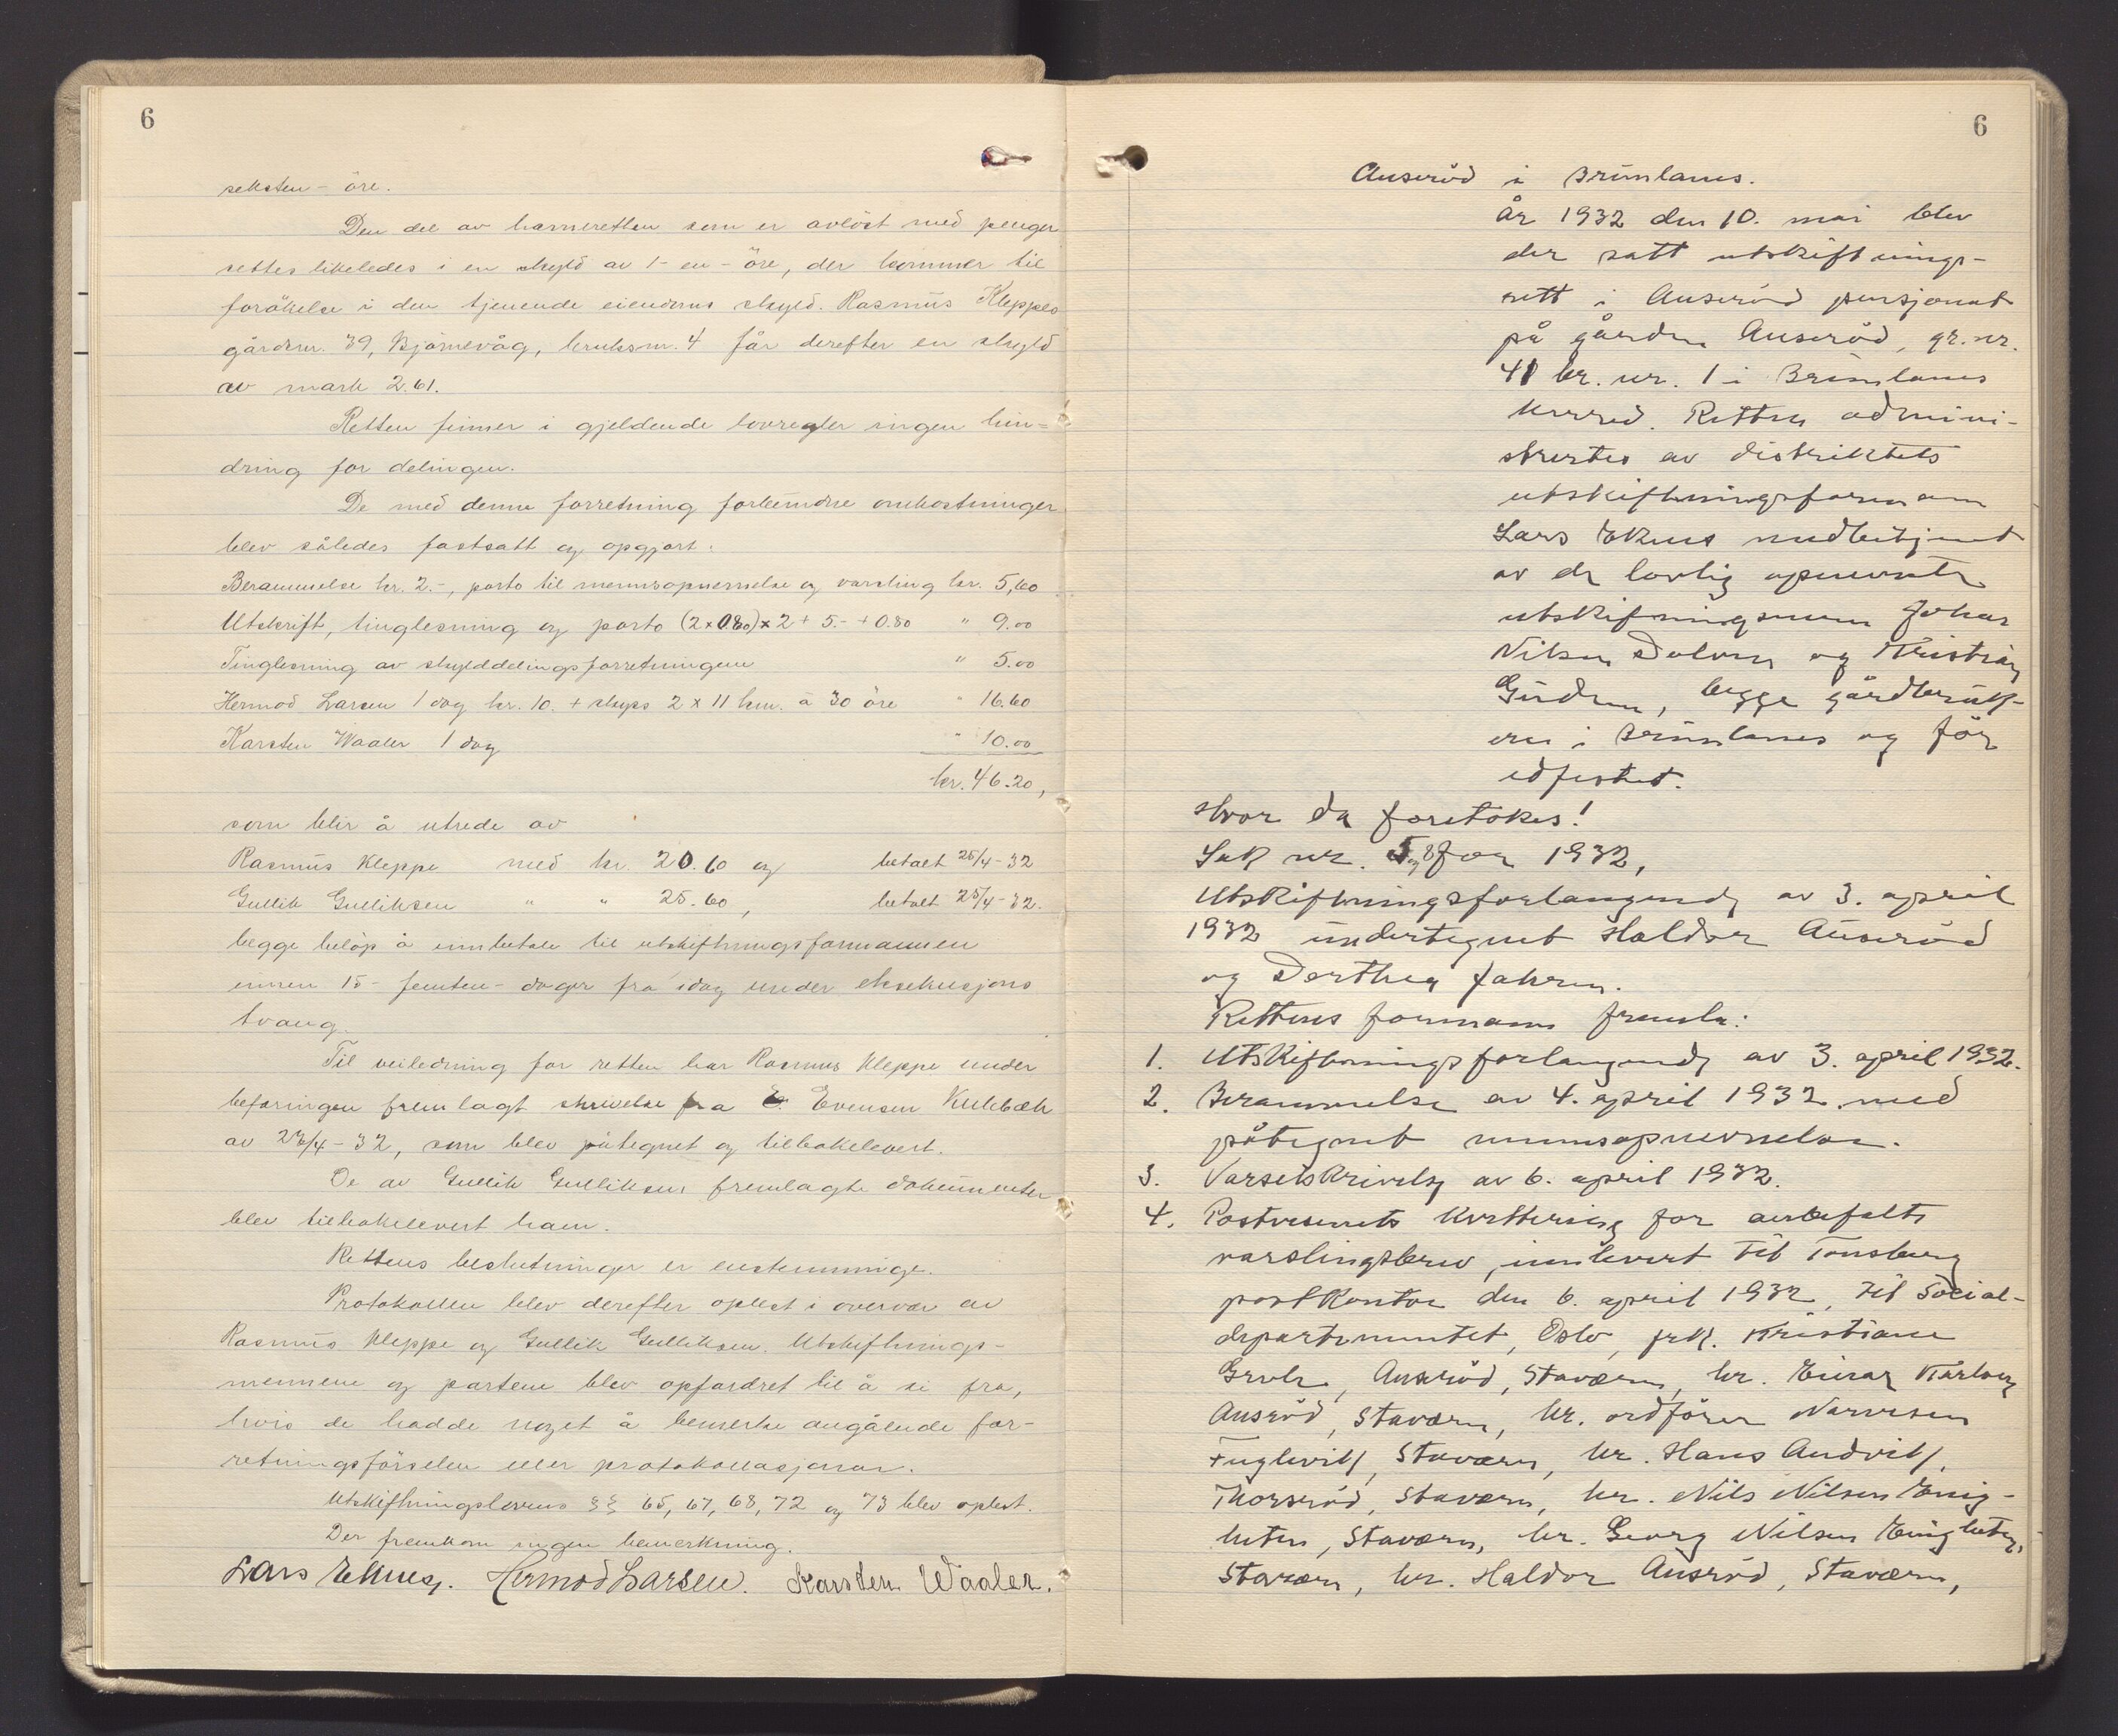 6
seksten - öre.
Den del av havneretten som er avlöst med penger
settes likeledes i en skyld av 1 - en - öre, der kommer til
forökelse i den tjenende eiendoms skyld. Rasmus Kleppes
gårdsnr. 39, Bjørnevåg, bruksnr. 4 får derefter en skyld
av mark 2.61.
Retten finner i gjeldende lovregler ingen hin=
dring for delingen.
De med denne forretning forbundne omkostninger
blev således fastsatt og opgjort:
Berammelse kr. 2.-, porto til mennsopnevnelse og varsling kr. 5,60
Utskrift, tinglesning og porto (2 x 0.80) x 2 + 5.- + 0.80 " 9.00
Tinglesning av skylddelingsforretningen " 5.00
Hermod Larsen 1 dag kr. 10. + skyss 2 x 11 km. à 30 öre " 16.60
Karsten Waaler 1 dag " 10.00
kr. 46.20,
som blir å utrede av
Rasmus Kleppe med kr. 20.60 og betalt 25/4-32
Gullik Gulliksen " " 25.60, betalt 25/4-32.
begge beløp å innbetale til utskiftningsformannen
innen 15 - femten - dager fra idag under eksekusjons
tvang.
Til veiledning for retten har Rasmus Kleppe under
befaringen fremlagt skrivelse fra Evensen Kulebæk
av 23/4-32, som blev påtegnet og tilbakelevert.
De av Gullik Gulliksen fremlagte dokumenter
blev tilbakelevert ham.
Rettens beslutninger er enstemmige.
Protokollen blev derefter oplest i overvær av
Rasmus Kleppe og Gullik Gulliksen. Utskiftnings-
mennene og partene blev opfordret til å si fra,
hvis de hadde noget å bemerke angående for-
retningsförselen eller protokollasjonen.
Utskiftningslovens §§ 65, 67, 68, 72 og 73 blev oplest.
Der fremkom ingen bemerkning.
Lars Eknes. Hermod Larsen. Karsten Waaler.
6
Auseröd i Brunlanes.
År 1932 den 10. mai blev
der satt utskiftnings-
rett i Auseröd pensjonat
på gården Auseröd, gr. nr.
41 br. nr. 1 i Brunlanes
herred. Retten admini-
strertes av distriktets
utskiftningsformann
Lars Eknes medbetjent
av de lovlig opnevnte
utskiftningsmenn Johan
Nilsen Dolven og Kristian
Gurdrun, begge gårdbruk-
ere i Brunlanes og för
edfestet.
Hvor da foretokes!
Sak nr. 5 og 8 for 1932,
Utskiftningsforlangende av 3. april
1932 undertegnet Haldor Auseröd
og Dorthea Jahren.
Rettens formann fremla:
1. Utskiftningsforlangende av 3. april 1932.
2. Berammelse av 4. april 1932 med
påtegnet mennsopnevnelse.
3. Varselskrivelse av 6. april 1932.
4. Postvesenets kvittering for anbefalte
varslingsbrev, innlevert til Tönsberg
postkontor den 6. april 1932, til Social-
departementet, Oslo, frk. Kristiane
Grøh, Auseröd, Stavern, hr. Einar Karlsen
Auseröd, Stavern, hr. ordförer Narvesen
Fuglevik, Stavern, hr. Hans Andvik,
Thorseröd, Stavern, hr. Nils Nilsen Enig-
heten, Stavern, hr. Georg Nilsen Enigheten,
Stavern, hr. Haldor Auseröd, Stavern,